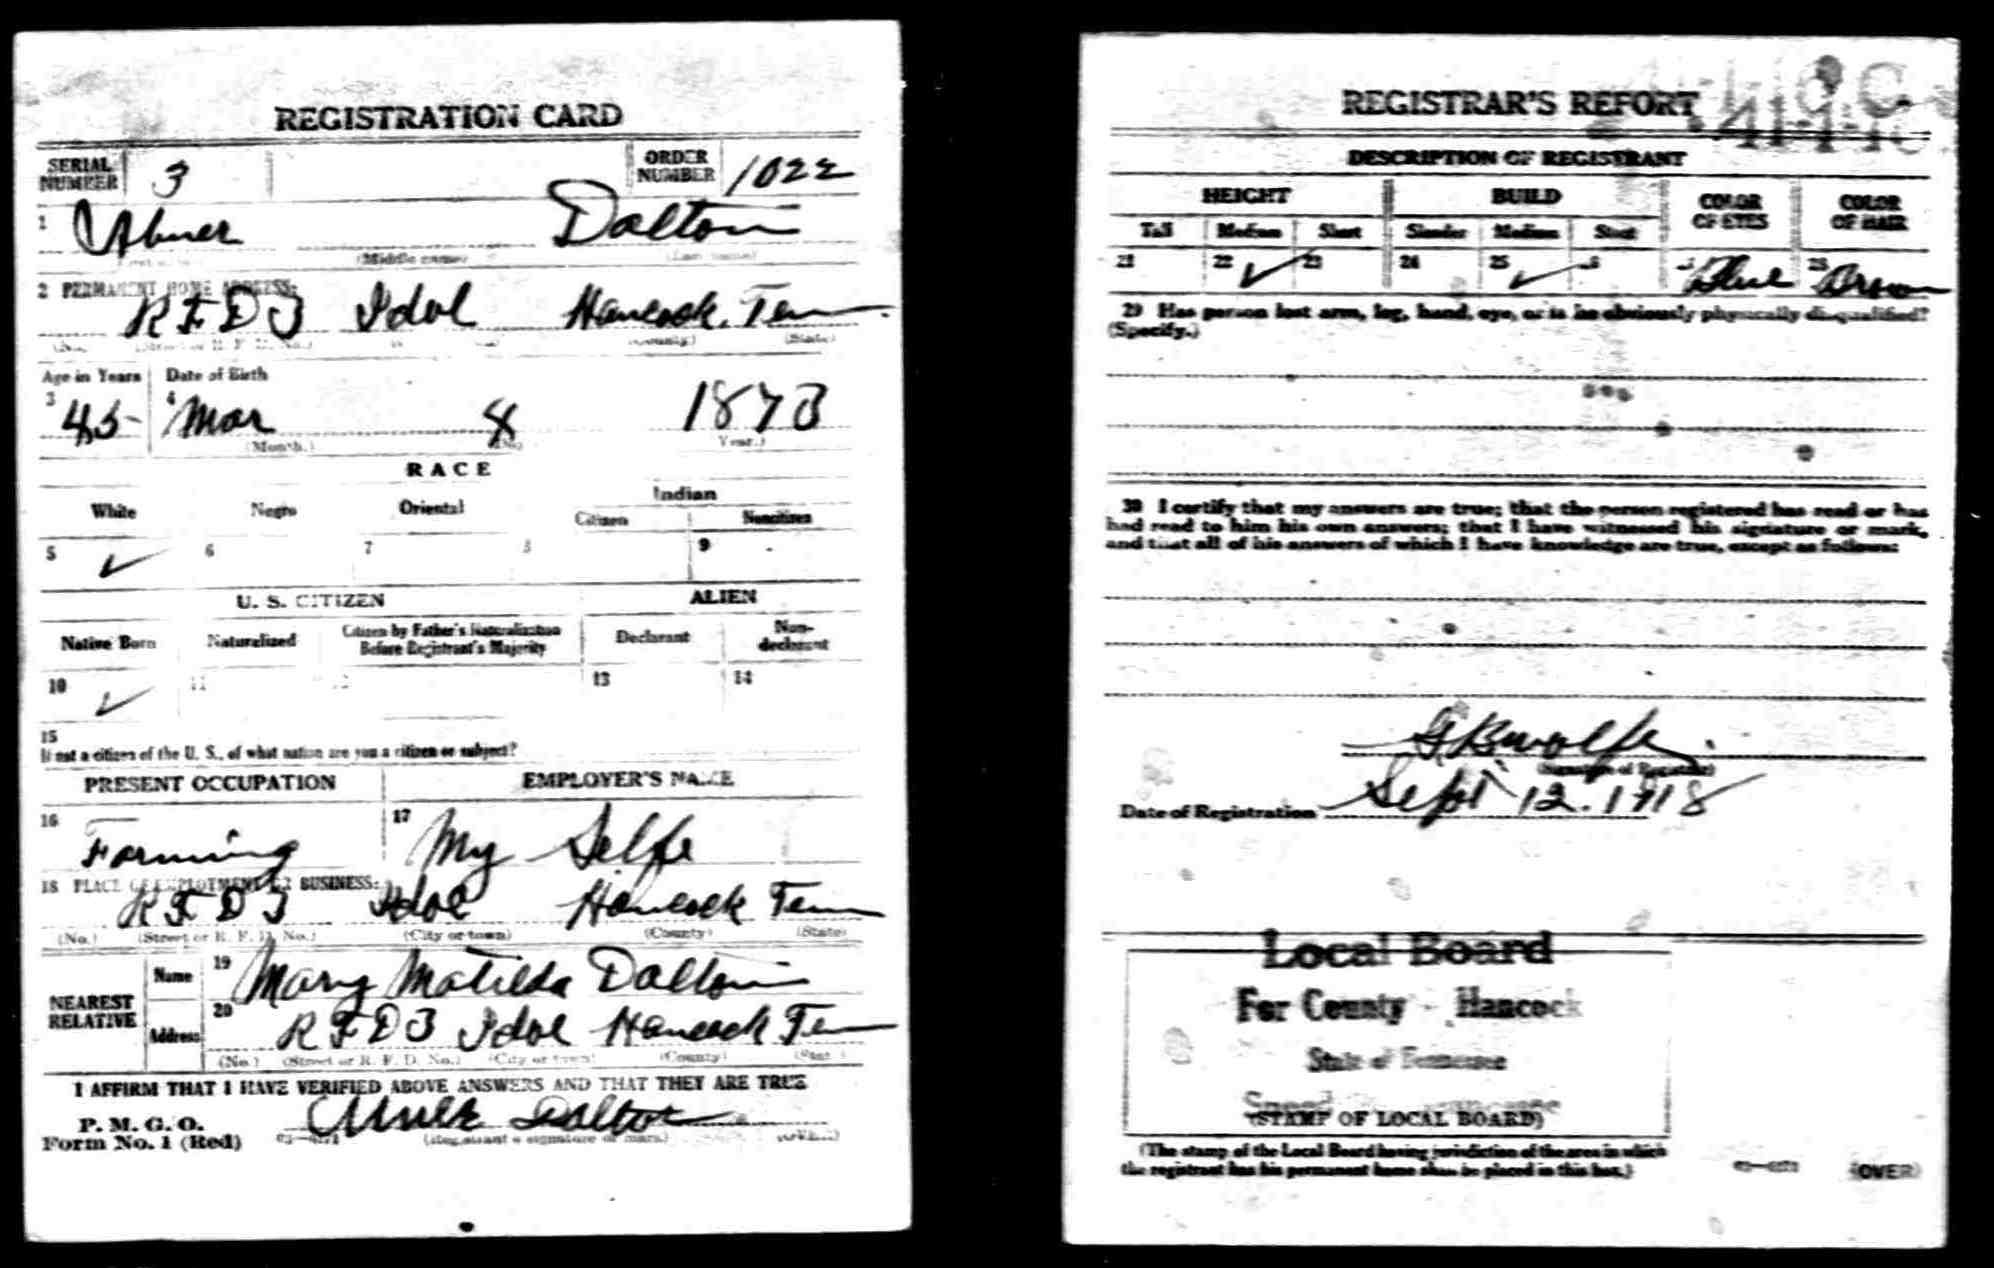 REGISTRATION CARD
SERIAL NUMBER 3 ORDER NUMBER 1022
1 Abner Dalton
(Middle name) (Last name)
2 PERMANENT HOME ADDRESS:
R F D 3 Idol Hancock, Tenn.
(No.) (Street or R. F. D. No.) (County) (State)
Age in Years Date of Birth
3 45 4 Mar 8 1873
(Month.) (Year.)
RACE
White Negro Oriental Indian
Citizen Noncitizen
5 ✓ 6 7 8 9
U. S. CITIZEN ALIEN
Native Born Naturalized Citizen by Father's Naturalization Before Registrant's Majority Declarant Non-declarant
10 ✓ 11 12 13 14
15
If not a citizen of the U. S., of what nation are you a citizen or subject?
PRESENT OCCUPATION EMPLOYER'S NAME
16 Farming 17 My Selfe
18 PLACE OF EMPLOYMENT OR BUSINESS:
R F D 3 Idol Hancock Tenn
(No.) (Street or R. F. D. No.) (City or town) (County) (State)
NEAREST RELATIVE Name 19 Mary Matilda Dalton
Address 20 R F D 3 Idol Hancock Tenn
(No.) (Street or R. F. D. No.) (City or town) (County) (State)
I AFFIRM THAT I HAVE VERIFIED ABOVE ANSWERS AND THAT THEY ARE TRUE
P. M. G. O.
Form No. 1 (Red) Abner Dalton
(Registrant's signature or mark.) (OVER)
REGISTRAR'S REPORT
DESCRIPTION OF REGISTRANT
HEIGHT BUILD COLOR OF EYES COLOR OF HAIR
Tall Medium Short Slender Medium Stout
21 22 ✓ 23 24 25 ✓ 26 27 Blue 28 Brown
29 Has person lost arm, leg, hand, eye, or is he obviously physically disqualified?
(Specify.)
30 I certify that my answers are true; that the person registered has read or has
had read to him his own answers; that I have witnessed his signature or mark,
and that all of his answers of which I have knowledge are true, except as follows:
G B Wolfe
(Signature of Registrar)
Date of Registration Sept 12. 1918
Local Board
For County Hancock
State of Tennessee
(STAMP OF LOCAL BOARD)
(The stamp of the Local Board having jurisdiction of the area in which
the registrant has his permanent home shall be placed in this box.)
(OVER)